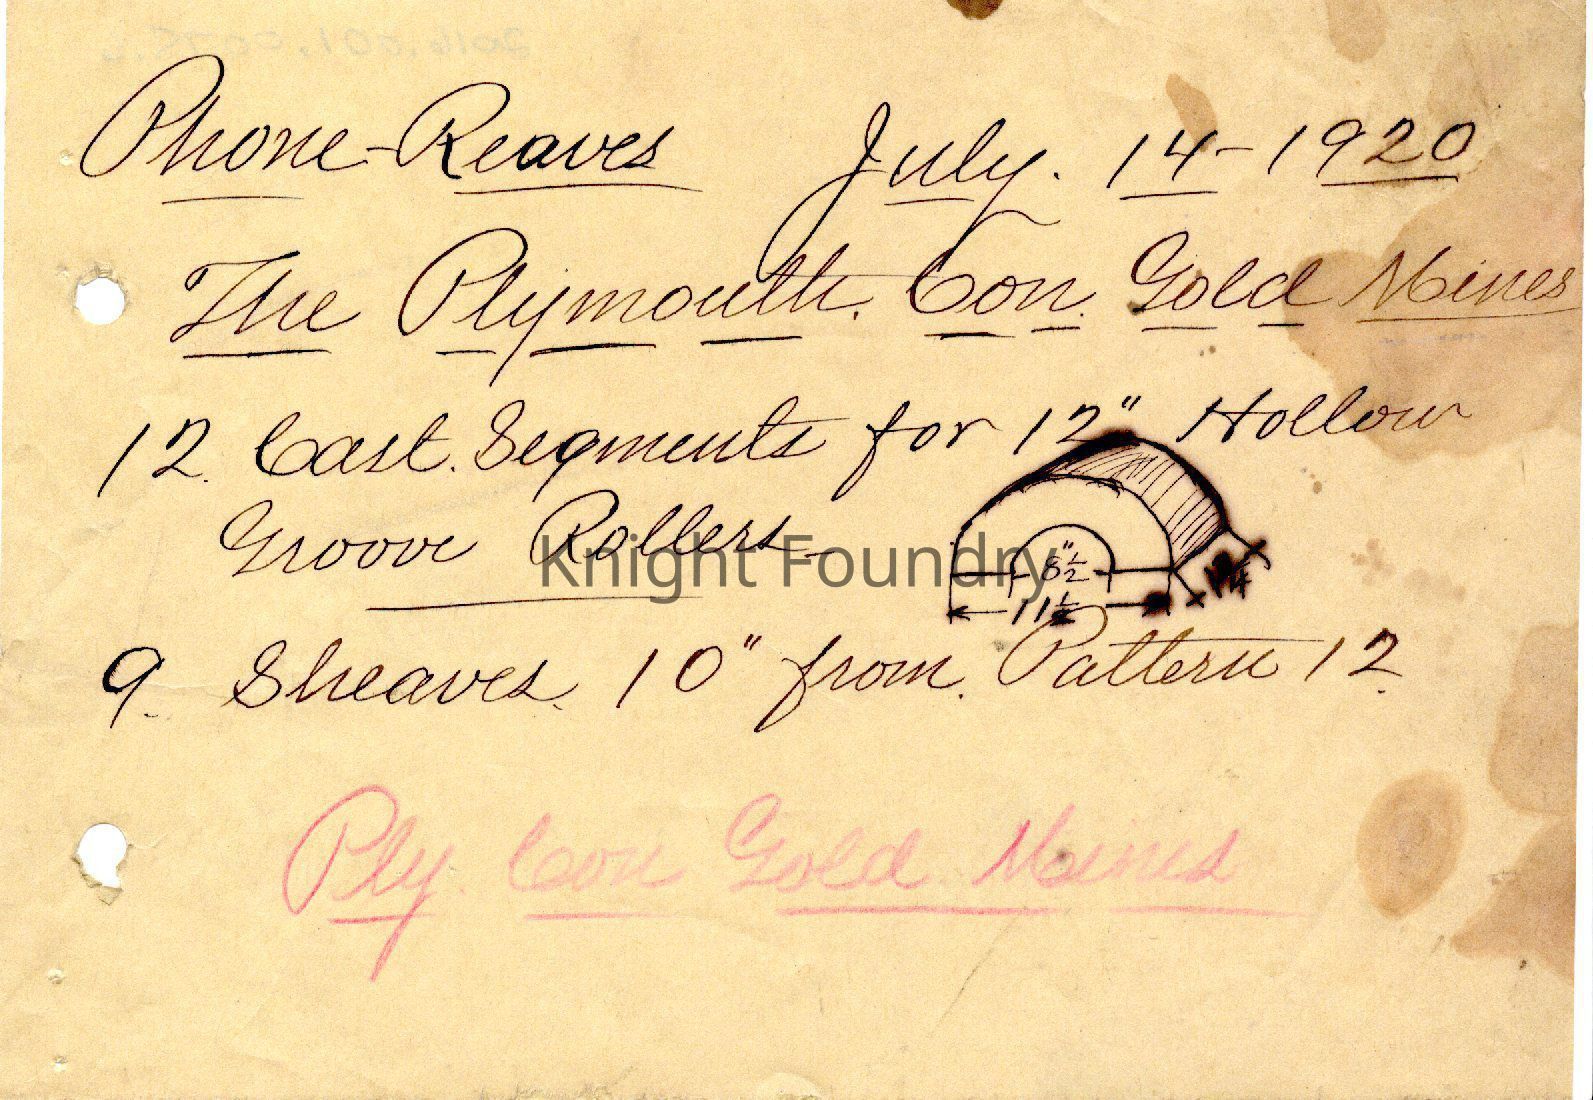 Phone-Reaves July. 14-1920
The Plymouth. Con. Gold Mines
12. Cast. Segments for 12" Hollow
Groove Rollers-
Knight Foundry
8½"
11½
9. Sheaves. 10" from. Pattern 12.
Ply. Con Gold Mines